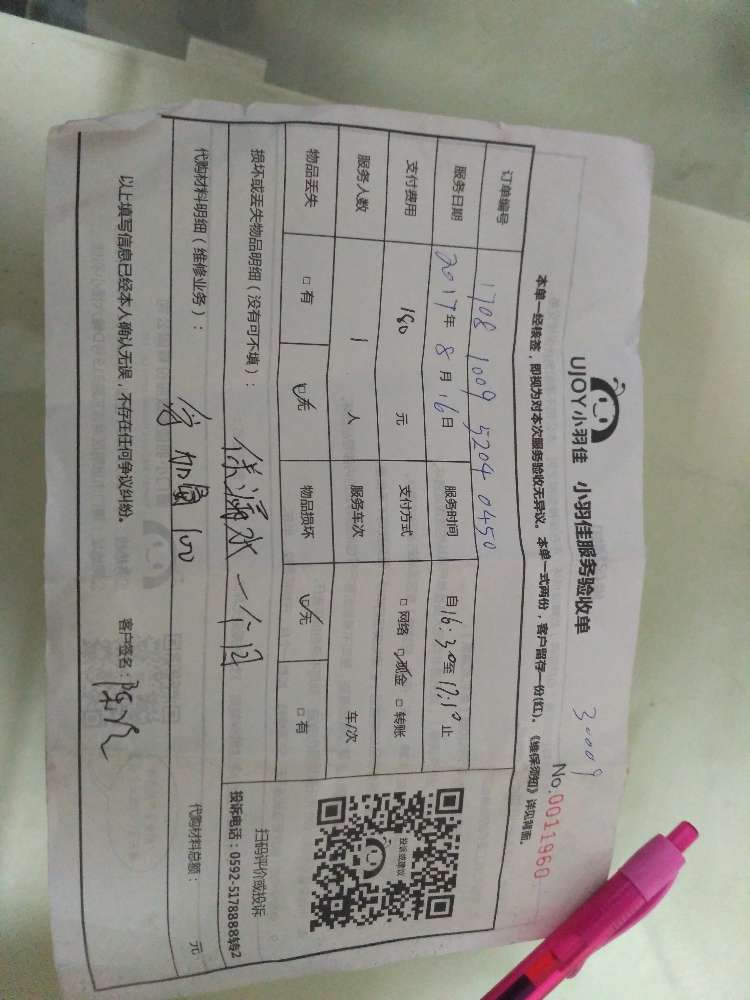 UJOY小羽佳 小羽佳服务验收单
30009
No:0011960
本单一经核签，即视为对本次服务验收无异议。本单一式两份，客户留存一份(红)。《维保须知》详见背面。
订单编号 1708 1009 5204 0450
服务日期 2017年 8月 16日 服务时间 自16:30至17:10止
支付费用 180 元 支付方式 □网络 ☑现金 □转账
服务人数 1 人 服务车次 车/次
物品丢失 □有 ☑无 物品损坏 ☑无 □有
损坏或丢失物品明细(没有可不填)：
保漏水一个月
扫码评价或投诉
投诉电话：0592-5178888转2
投诉或建议
代购材料明细(维修业务)：
100
代购材料总额： 元
以上填写信息已经本人确认无误，不存在任何争议纠纷。 客户签名：